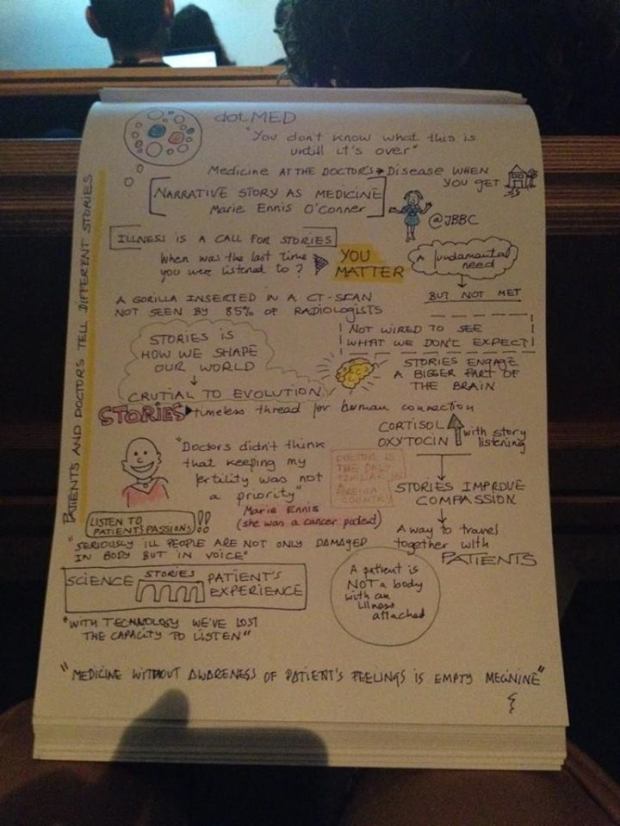 dotMED
"You don't know what this is
untill it's over"
Medicine AT THE DOCTORS Disease WHEN
YOU GET
NARRATIVE STORY AS MEDICINE
Marie Ennis O'Conner
@JBBC
ILLNESS IS A CALL FOR STORIES
When was the last time
you were listened to?
YOU
MATTER
A fundamental
need
BUT NOT MET
PATIENTS AND DOCTORS TELL DIFFERENT STORIES
A GORILLA INSERTED IN A CT-SCAN
NOT SEEN BY 85% OF RADIOLOGISTS
NOT WIRED TO SEE
WHAT WE DON'T EXPECT!
STORIES IS
HOW WE SHAPE
OUR WORLD
CRUTIAL TO EVOLUTION
STORIES ENGAGE
A BIGGER PART OF
THE BRAIN
STORIES timeless thread for human connection
CORTISOL
OXYTOCIN
with story
listening
"Doctors didn't think
that keeping my
fertility was not
a priority"
Marie Ennis
(she was a cancer patient)
DOCTOR IS
THE ONLY
IN A
FOREIGN
COUNTRY
STORIES IMPROVE
COMPASSION
A way to travel
together with
PATIENTS
LISTEN TO
PATIENT'S PASSIONS!!
"SERIOUSLY ILL PEOPLE ARE NOT ONLY DAMAGED
IN BODY BUT IN VOICE"
SCIENCE STORIES PATIENT'S
EXPERIENCE
A patient is
NOT a body
with an
illness
attached
"WITH TECHNOLOGY WE'VE LOST
THE CAPACITY TO LISTEN"
"MEDICINE WITHOUT AWARENESS OF PATIENT'S FEELINGS IS EMPTY MECININE"